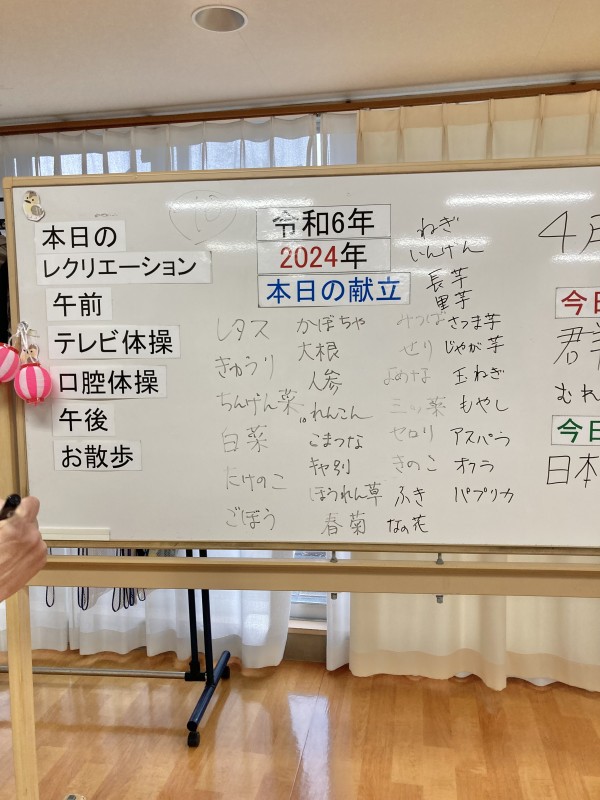 本日の
レクリエーション
午前
テレビ体操
口腔体操
午後
お散歩
10
令和6年
2024年
本日の献立
レタス
きゅうり
ちんげん菜
白菜
たけのこ
ごぼう
かぼちゃ
大根
人参
れんこん
10
こまつな
キャ別
ほうれん草
春菊
みつば
せり
よめな
三ッ葉
セロリ
きのこ
ふき
なの花
ねぎ
いんげん
長芋
里芋
さつま芋
じゃが芋
玉ねぎ
もやし
アスパラ
オクラ
パプリカ
4月
今日
君
むれ
今日
日本